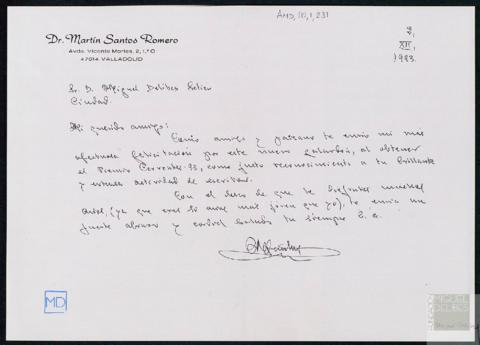 AMD, 111, 1, 231
Dr. Martín Santos Romero
Avda. Vicente Mortes, 2, 1.º D
47014 VALLADOLID
2,
XII,
1993.
Sr. D. Miguel Delibes Setién
Ciudad.
Mi querido amigo:
Como amigo y paisano te envío mi más
afectuosa felicitación por este nuevo galardón, al obtener
el Premio Cervantes-93, como justo reconocimiento a tu brillante
y extensa actividad de escritor.
Con el deseo de que lo disfrutes muchos
años, (ya que eres un año más joven que yo), te envía un
fuerte abrazo y cordial saludo tu siempre
MD
FUNDACIÓN
MIGUEL
DELIBES